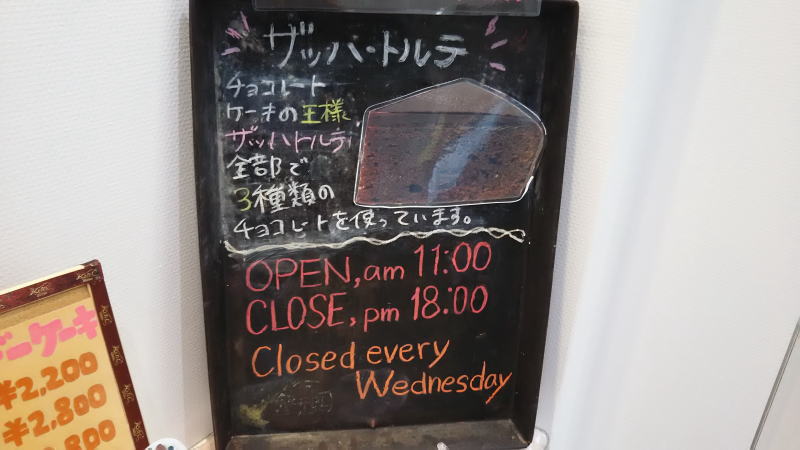 ザッハ・トルテ
チョコレート
ケーキの王様
ザッハトルテ
全部で
3種類の
チョコレートを使っています。
OPEN, am 11:00
CLOSE, pm 18:00
Closed every
Wednesday
ーケーキ
¥2,200
¥2,800
,800